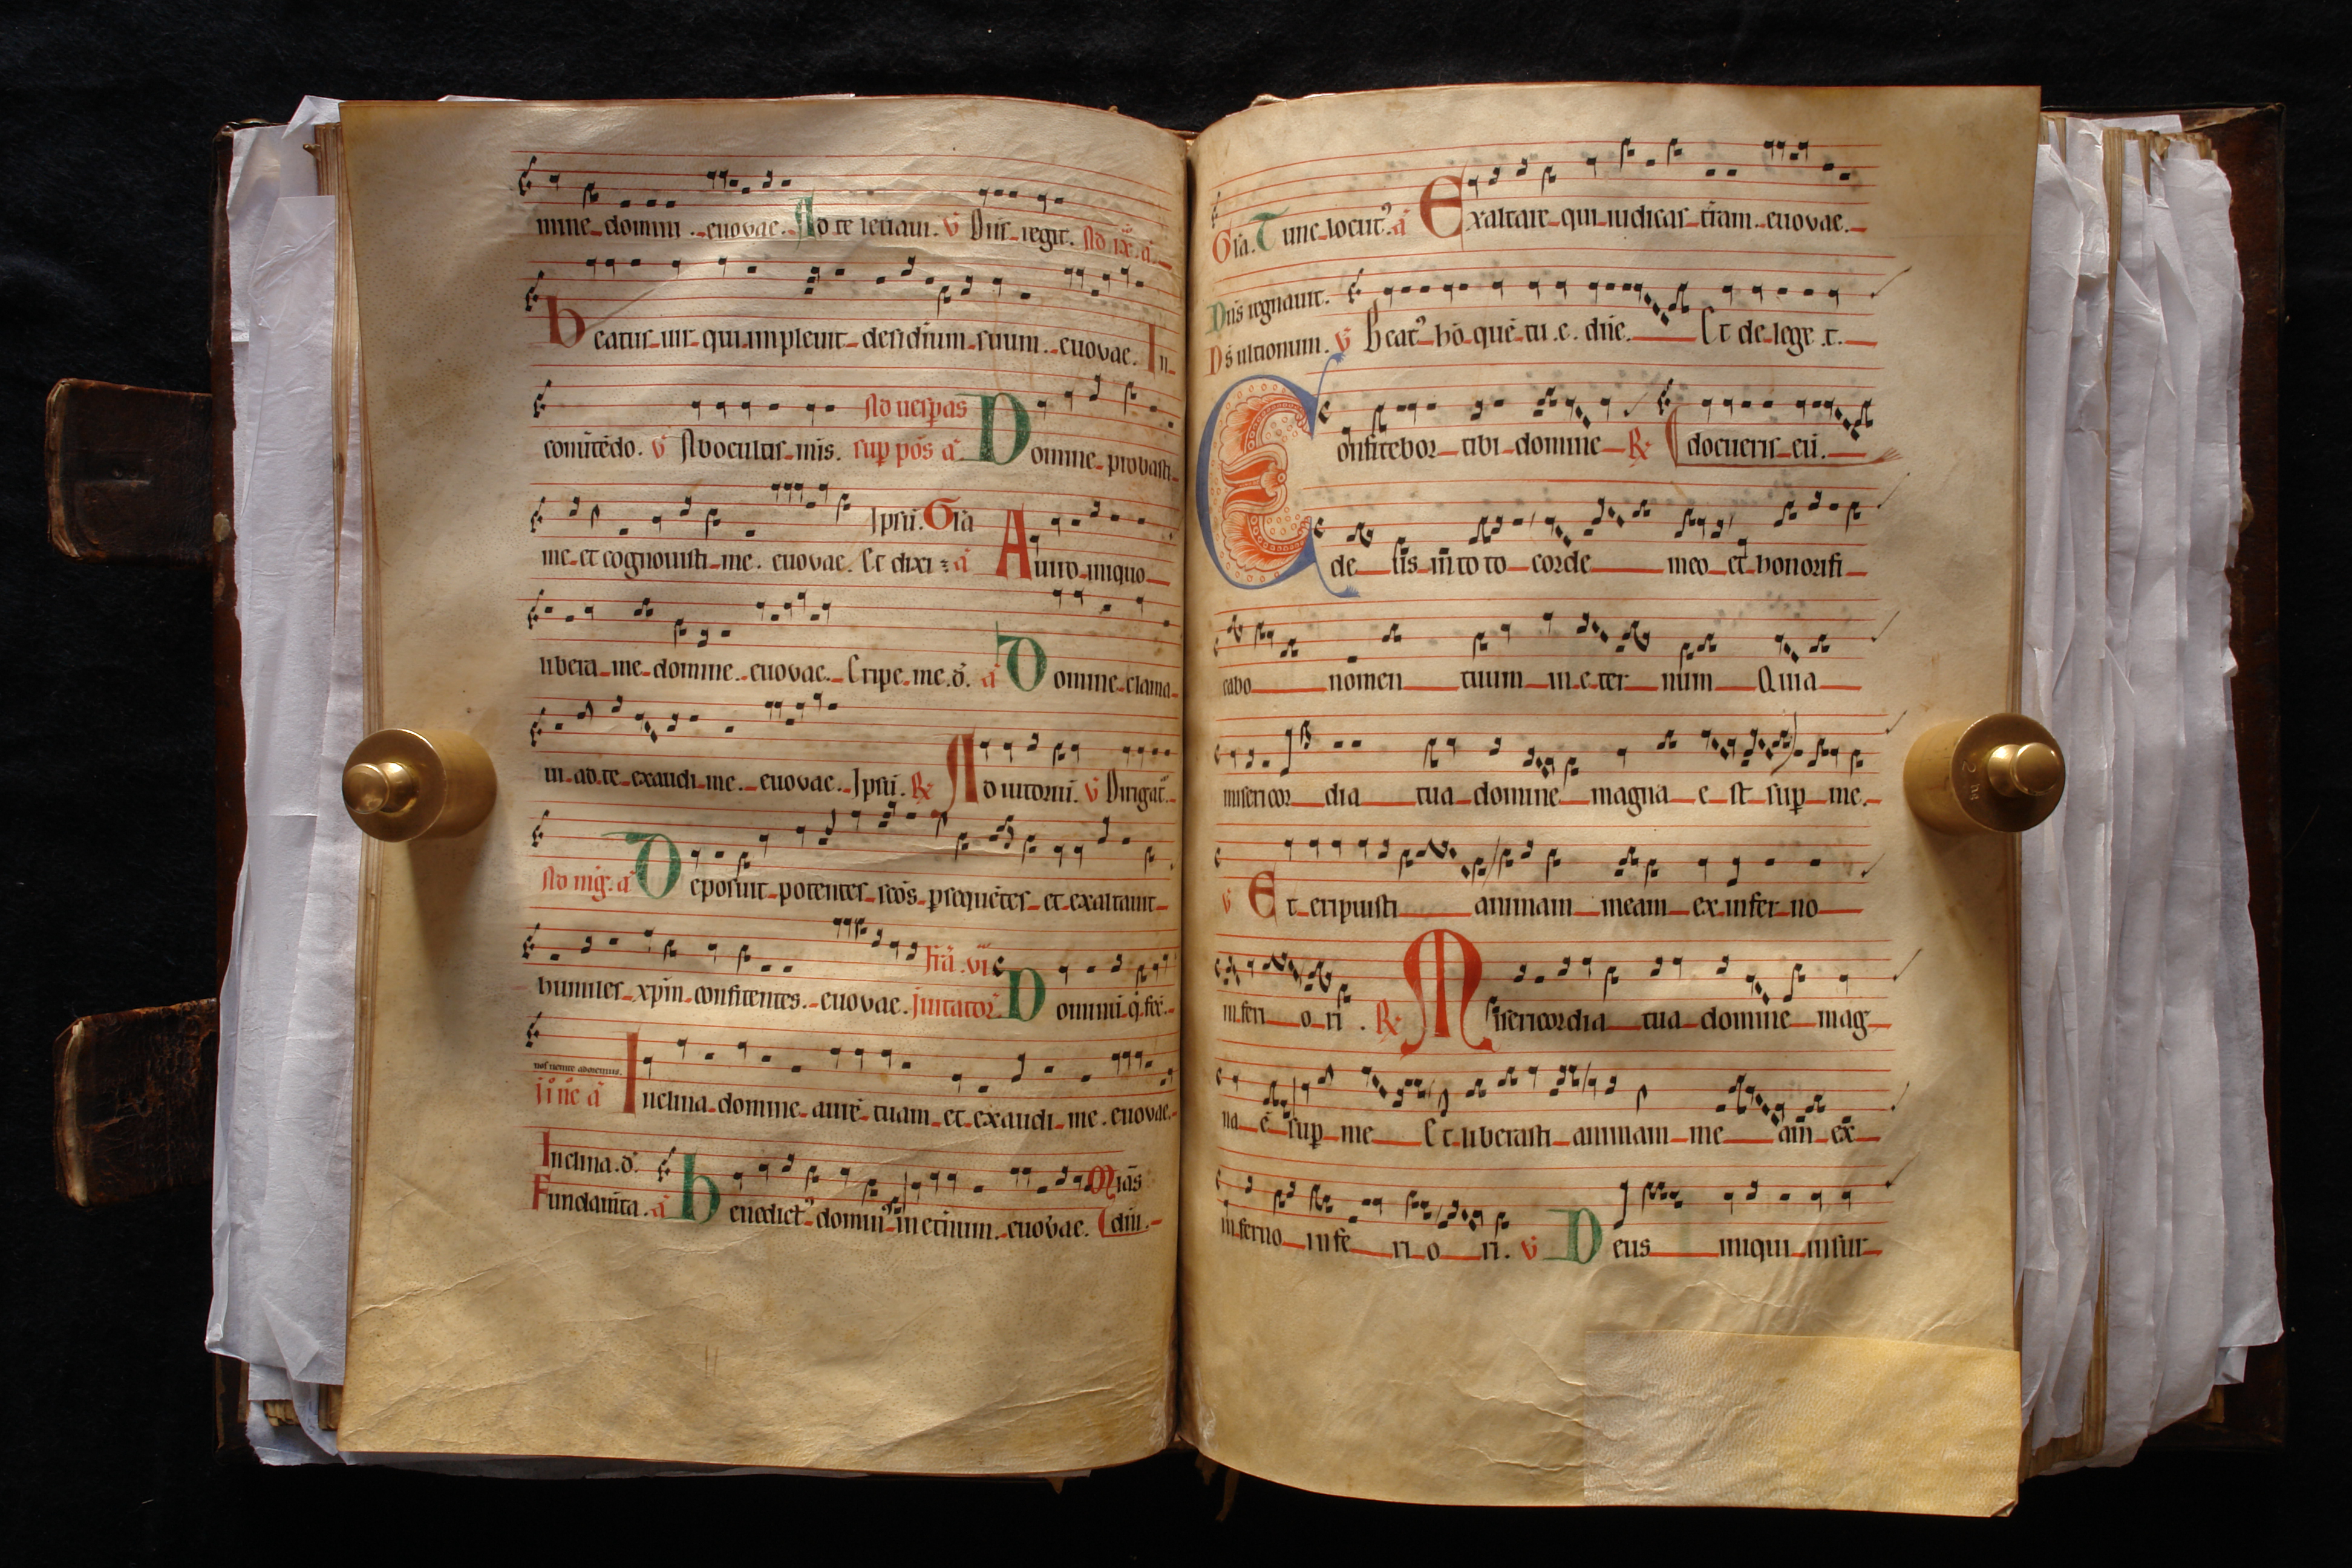 mine domini . euovae. Ad te levavi. V Dns regit. Ad ix. a.
Beatus vir qui implevit desidium suum . euovae. In
comitedo. V Ab ocultis mis. Ad vespas sup pos a. Domine probasti
me et cognovisti me. euovae. Et dixi a Ipsu. Gla A viro iniquo
libera me domine . euovae. Eripe me d. a Domine clama
vi ad te exaudi me . euovae. Ipsu. R Adiutoriu. V Dirigat.
Ad mg. a Deposuit potentes scos psequetes et exaltavit
humiles xpm confitentes . euovae. fra vi Invitator Dominu q fec
nos venite adoremus.
Inclina domine aure tuam et exaudi me . euovae.
Inclina d.
Fundamta. a Benedict' domin' in etnum . euovae. Mias
dni.
Gla. Tunc locut'. a Exaltare qui iudicas tram euovae.
Dns regnavit.
Ds ultionum. V Beat' ho que tu e. dne. Et de lege t.
Confitebor tibi domine R docueris eu.
de us in toto corde meo et honorifi
cabo nomen tuum in eter num Quia
misericor dia tua domine magna e st sup me.
V Et eripuisti animam meam ex infer no
inferi o ri . R Misericordia tua domine mag
na e sup me Et liberasti animam me am ex
inferno infe ri o ri. V Deus iniqui insur